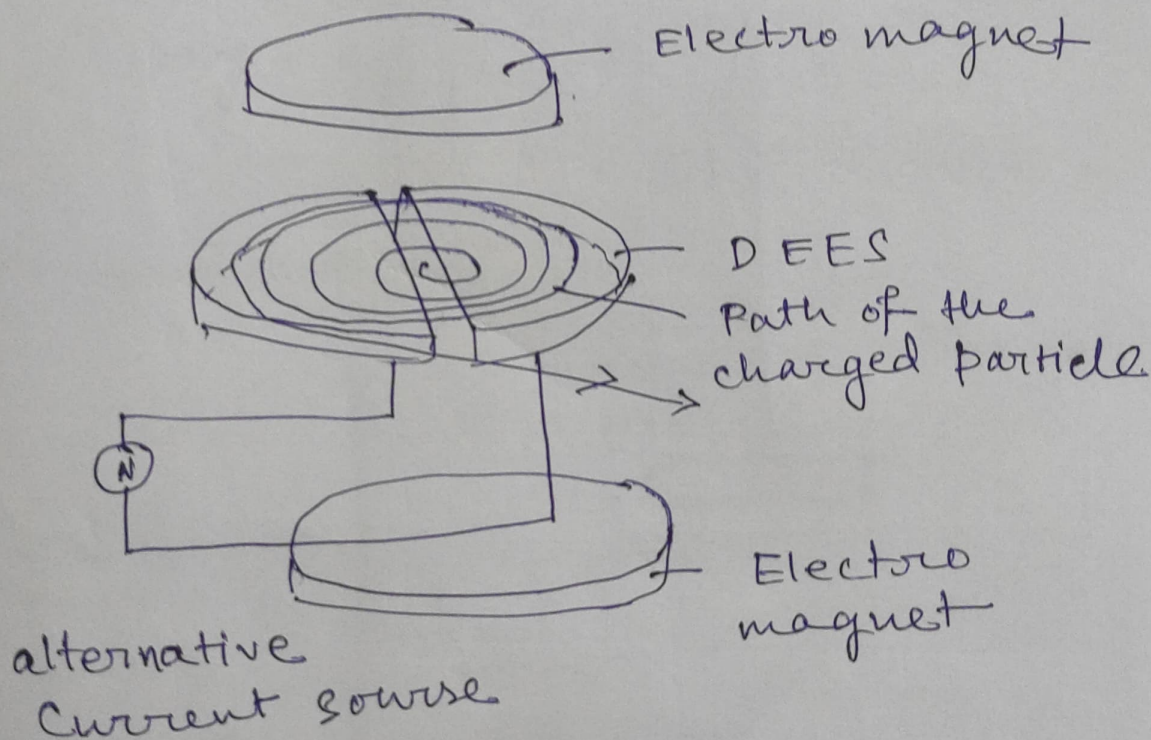 Electro magnet
DEES
Path of the
charged particle
N
Electro
magnet
alternative
Current sourse